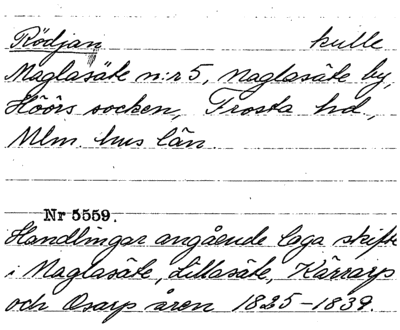 Rödjan kulle
Maglasäte n:r 5, Maglasäte by,
Höörs socken, Frosta hd,
Mlm. hus län
Nr 5559.
Handlingar angående laga skifte
i Maglasäte, Lillasäte, Kärrarp
och Osarp åren 1825-1839.